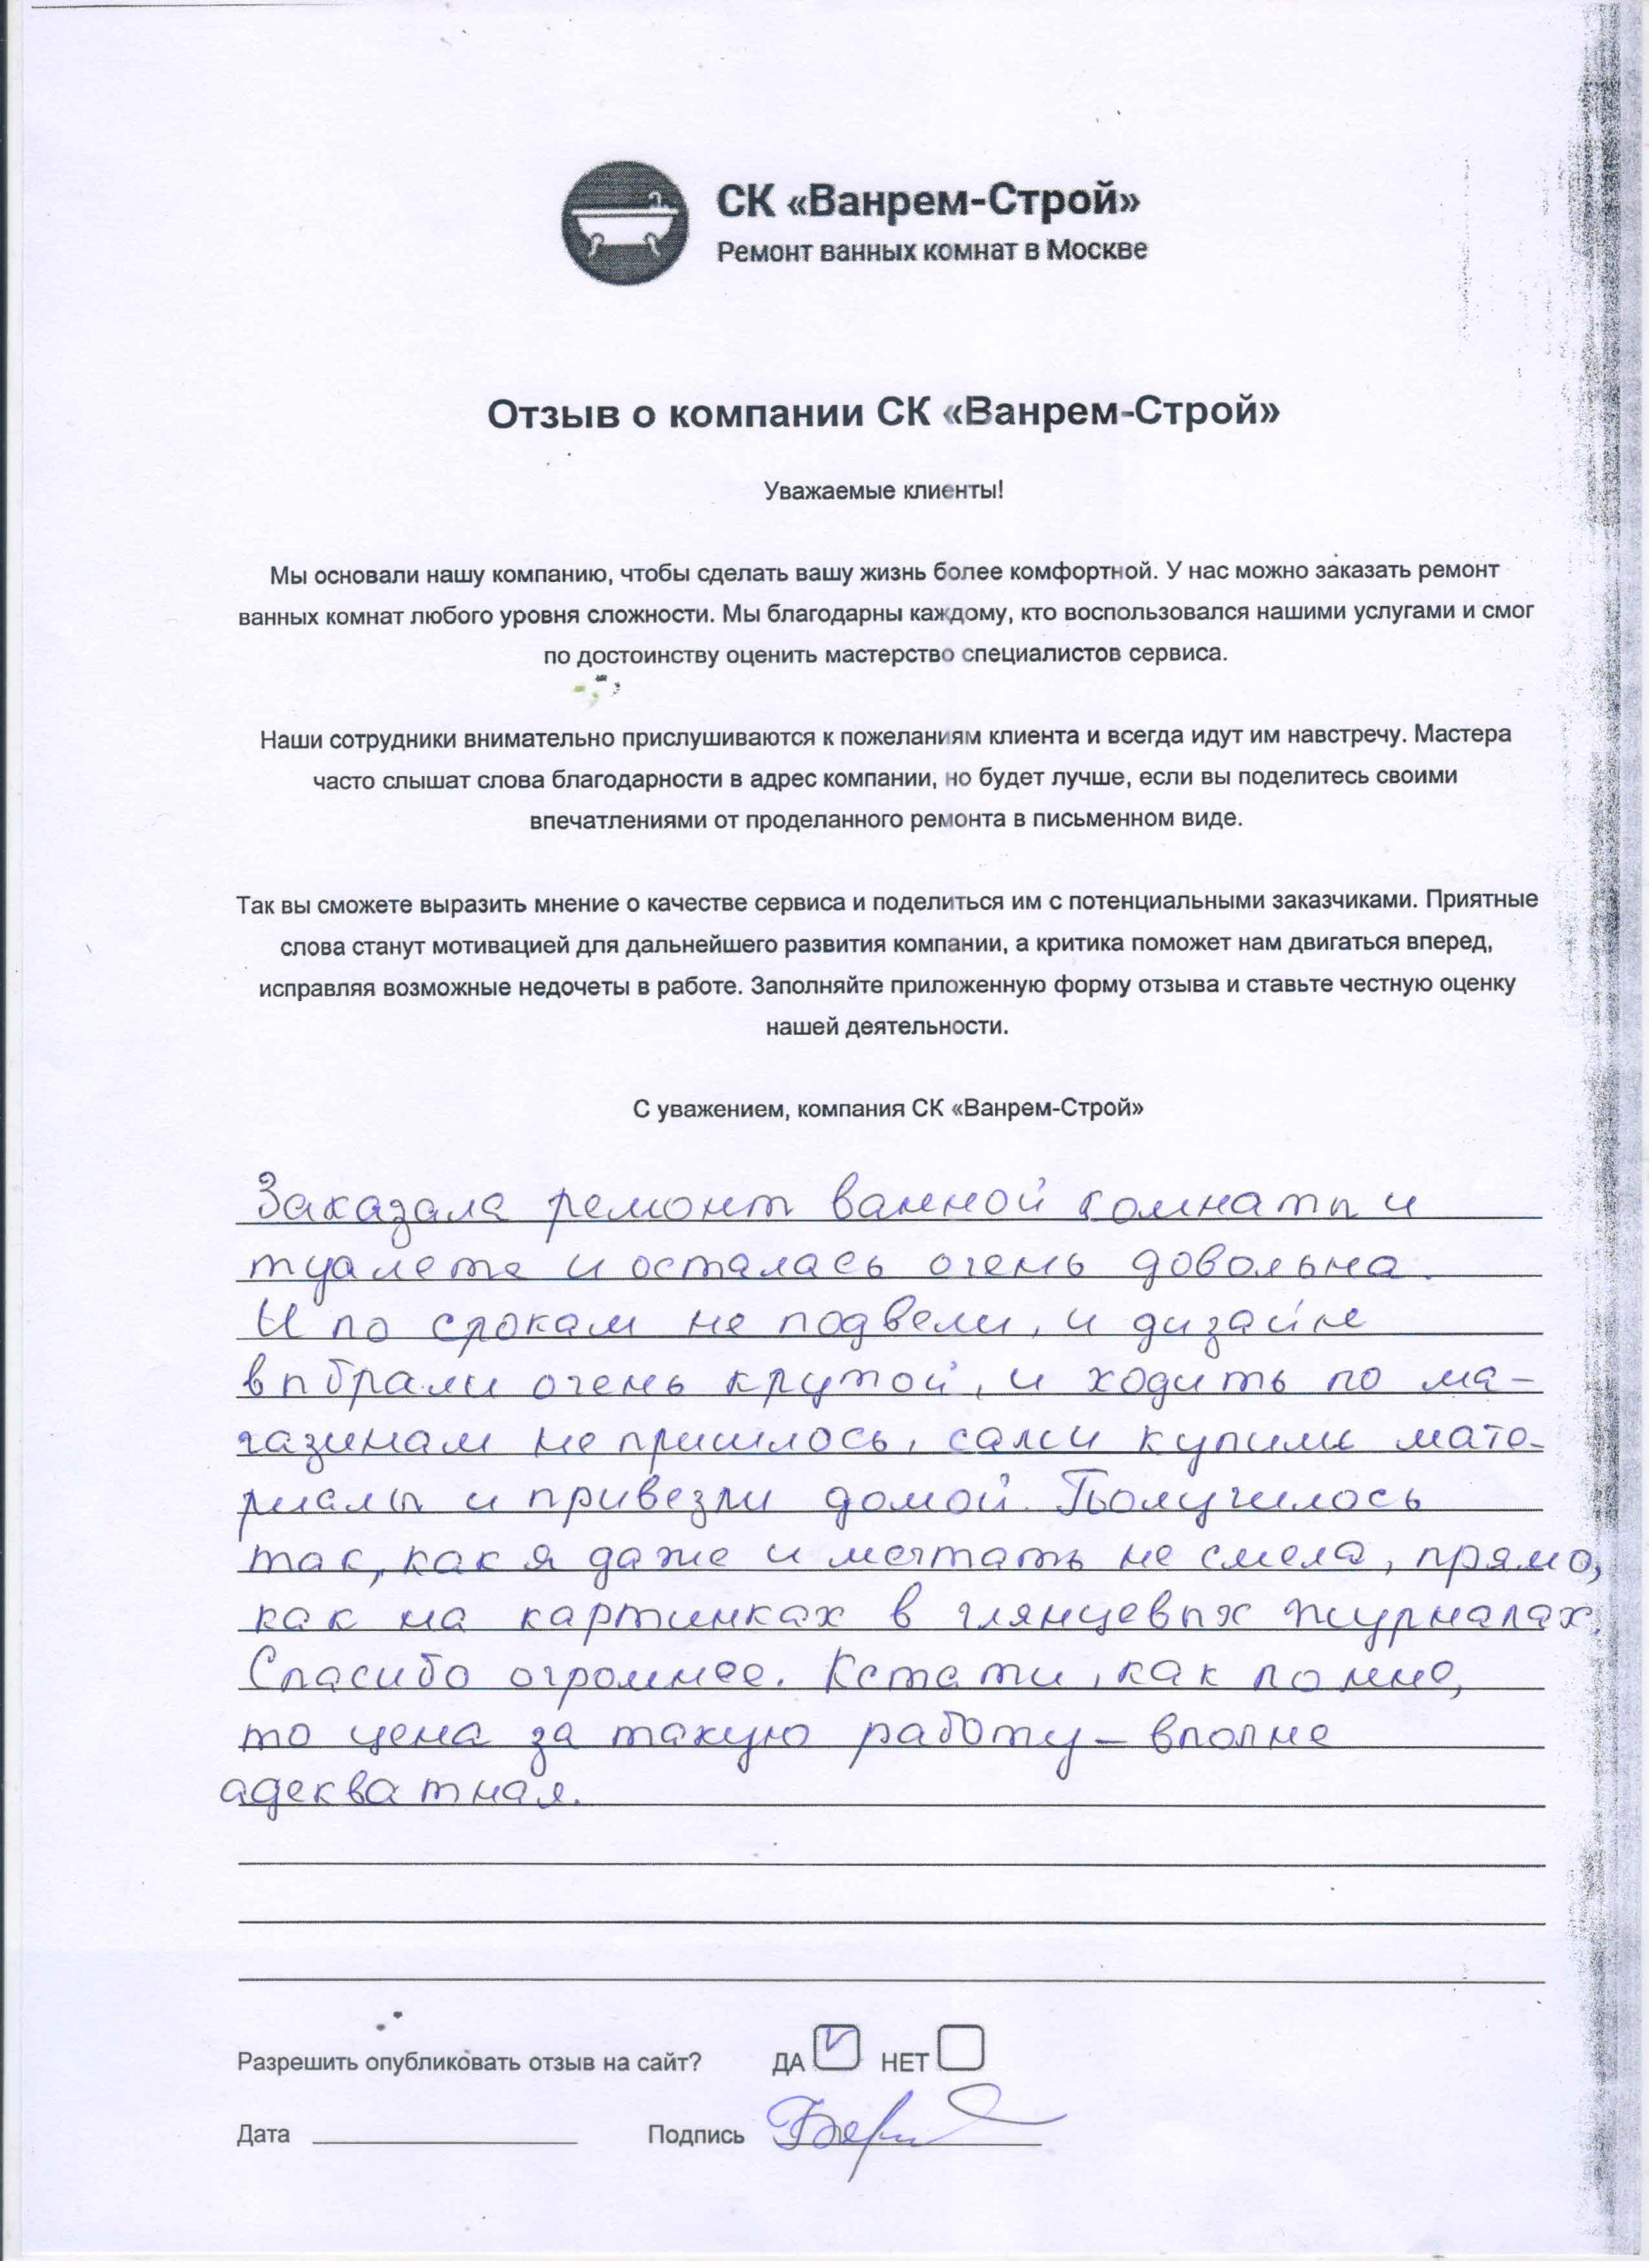 СК «Ванрем-Строй»
Ремонт ванных комнат в Москве
Отзыв о компании СК «Ванрем-Строй»
Уважаемые клиенты!
Мы основали нашу компанию, чтобы сделать вашу жизнь более комфортной. У нас можно заказать ремонт
ванных комнат любого уровня сложности. Мы благодарны каждому, кто воспользовался нашими услугами и смог
по достоинству оценить мастерство специалистов сервиса.
Наши сотрудники внимательно прислушиваются к пожеланиям клиента и всегда идут им навстречу. Мастера
часто слышат слова благодарности в адрес компании, но будет лучше, если вы поделитесь своими
впечатлениями от проделанного ремонта в письменном виде.
Так вы сможете выразить мнение о качестве сервиса и поделиться им с потенциальными заказчиками. Приятные
слова станут мотивацией для дальнейшего развития компании, а критика поможет нам двигаться вперед,
исправляя возможные недочеты в работе. Заполняйте приложенную форму отзыва и ставьте честную оценку
нашей деятельности.
С уважением, компания СК «Ванрем-Строй»
Заказала ремонт ванной комнаты и
туалета и осталась очень довольна.
И по срокам не подвели, и дизайн
выбрали очень крутой, и ходить по ма-
газинам не пришлось, сами купили мате-
риалы и привезли домой. Получилось
так, как я даже и мечтать не смела, прямо,
как на картинках в глянцевых журналах.
Спасибо огромное. Кстати, как по мне,
то цена за такую работу – вполне
адекватная.
Разрешить опубликовать отзыв на сайт? ДА НЕТ
Дата Подпись